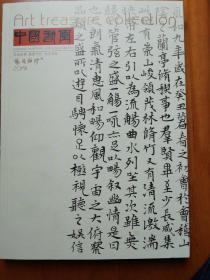 Art treasure collection
中國
九年歲在癸丑暮春之初會于會稽山
蘭亭脩禊事也群賢畢至少長咸集
有崇山峻領茂林脩竹又有清流激湍
左右引以為流觴曲水列坐其次雖無
管弦之盛一觴一詠亦足以暢敘幽情是日
也朗氣清惠風和暢仰觀宇宙之大俯察
所以遊目騁懷足以極視聽之娛信